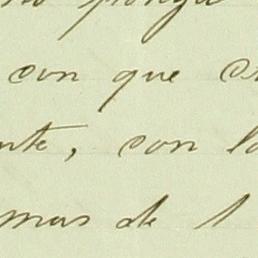 ponga
con que
nte, con lo
mas de l